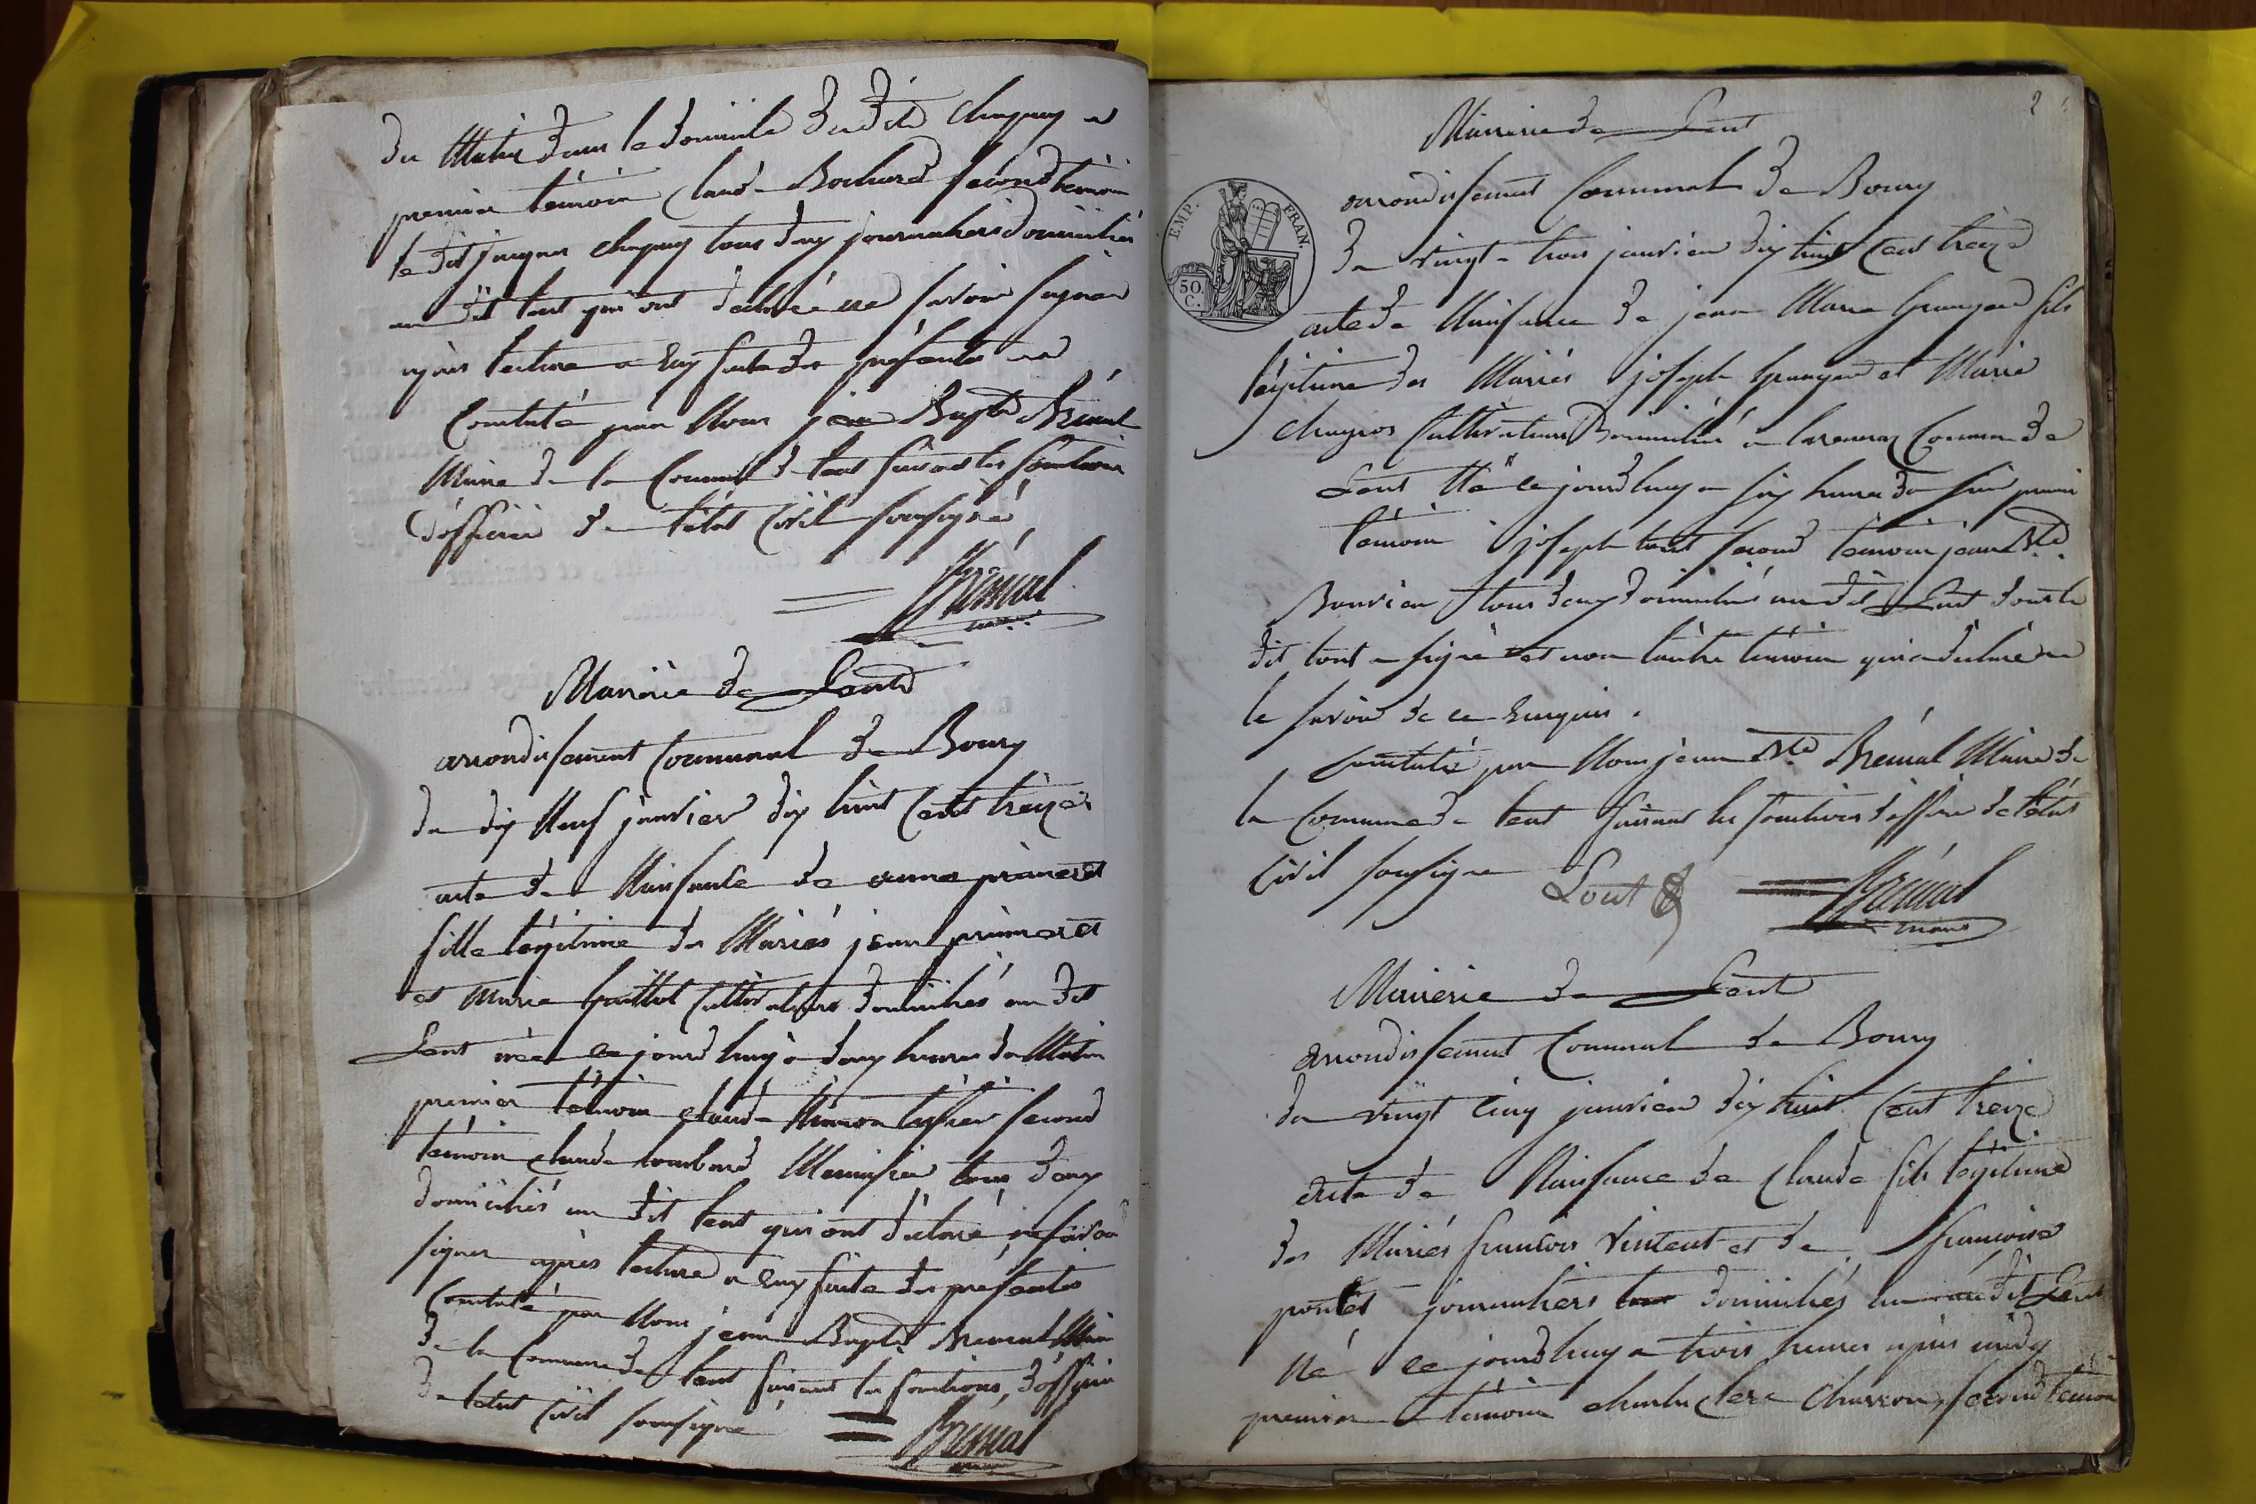 du Matin dans le domicile dudit chapuy
premier témoin Claude Bochard second témoin
le dit jacques chapuy tous deux journaliers domiciliés
au dit Lent qui ont déclaré ne savoir signer
après lecture a Eux faite des présentes
Constaté par Nous jean Bapte Brémal
Maire de la Commune de Lent faisant les fonctions
d'officier de l'état Civil soussigné
Brémal
maire
Mairie de Lent
arrondissement Communal de Bourg
du dix Neuf janvier dix huit Cent treize
acte de Naissance de anne
fille légitime des Mariés jean
et Marie Guillot Cultivateurs domiciliés au dit
Lent née ce jourd'huy a deux heures du Matin
premier témoin claude second
témoin claude Menuisier tous deux
domiciliés au dit Lent qui ont déclaré ne savoir
signer après lecture a Eux faite des présentes
Constaté par Nous jean Bapte Bremal Maire
de la Commune de Lent faisant les fonctions d'officier
de l'etat Civil soussigné
Bremal
2
Mairerie de Lent
arrondissement Communal de Bourg
EMP. FRAN.
50 C.
du vingt-trois janvier dix huit Cent treize
acte de Naissance de jean Marie Granger fils
légitime des Mariés joseph Granger et Marie
Cultivateurs Domiciliés a Commune de
Lent Né ce jourd'huy a six heures du soir premier
témoin joseph second témoin jean Bte
Bouvier tous deux domiciliés au dit Lent dont le
dit a signé et non l'autre témoin qui a déclaré ne
le savoir de ce Enquis.
Constaté par Nous jean Bte Brémal Maire de
la Commune de Lent faisant les fonctions d'officier de l'état
Civil soussigné
Brémal
maire
Mairerie de Lent
arrondissement Communal de Bourg
du vingt cinq janvier dix huit Cent treize
acte de Naissance de Claude fils légitime
des Mariés françois Vintent et de françoise
journaliers domiciliés au dit Lent
Né ce jourd'huy a trois heures après midy
premier témoin charles clerc Charron, second témoin